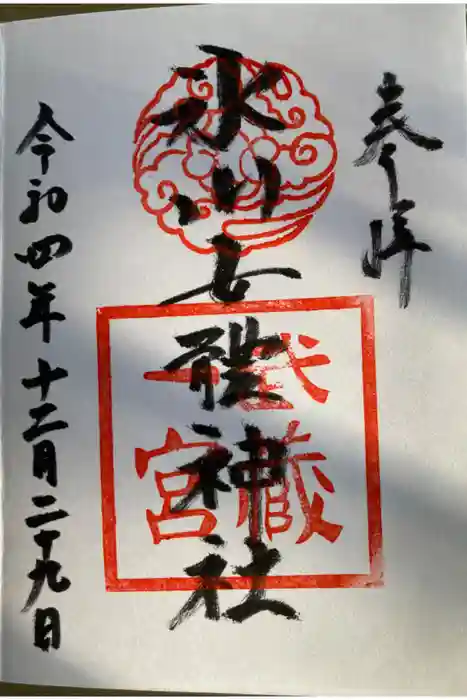 奉拝
氷川女體神社
武藏
一宮
令和四年十二月二十九日